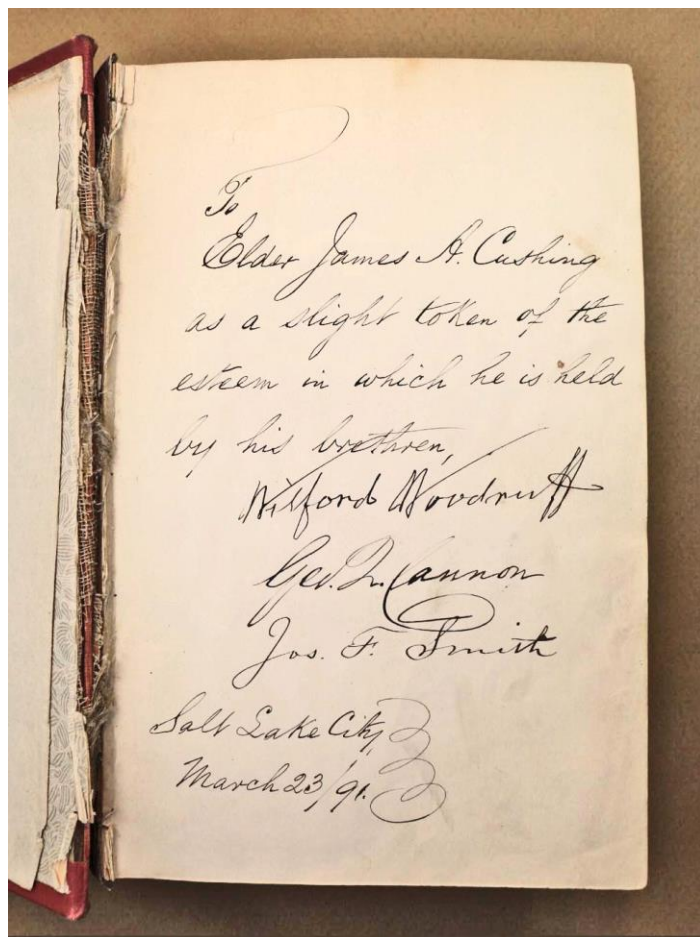 To
Elder James A. Cushing
as a slight token of the
esteem in which he is held
by his brethren,
Wilford Woodruff
Geo. Q. Cannon
Jos. F. Smith
Salt Lake City,
March 23/91.